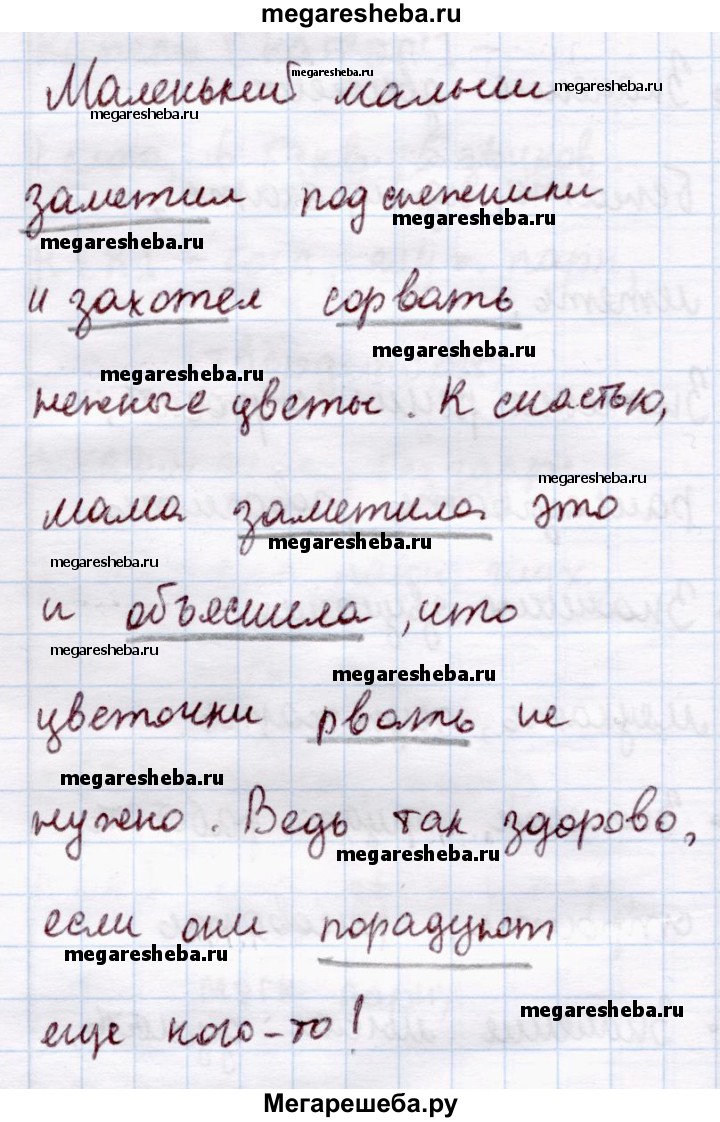 megaresheba.ru
Маленький малыш
megaresheba.ru
megaresheba.ru
megaresheba.ru
заметил подснежники
megaresheba.ru
megaresheba.ru
и захотел сорвать
megaresheba.ru
megaresheba.ru
нежные цветы. К счастью,
megaresheba.ru
мама заметила это
megaresheba.ru
megaresheba.ru
и объяснила, что
megaresheba.ru
megaresheba.ru
цветочки рвать не
megaresheba.ru
нужно. Ведь так здорово,
megaresheba.ru
если они порадуют
megaresheba.ru
megaresheba.ru
еще кого-то!
Мегарешеба.ру